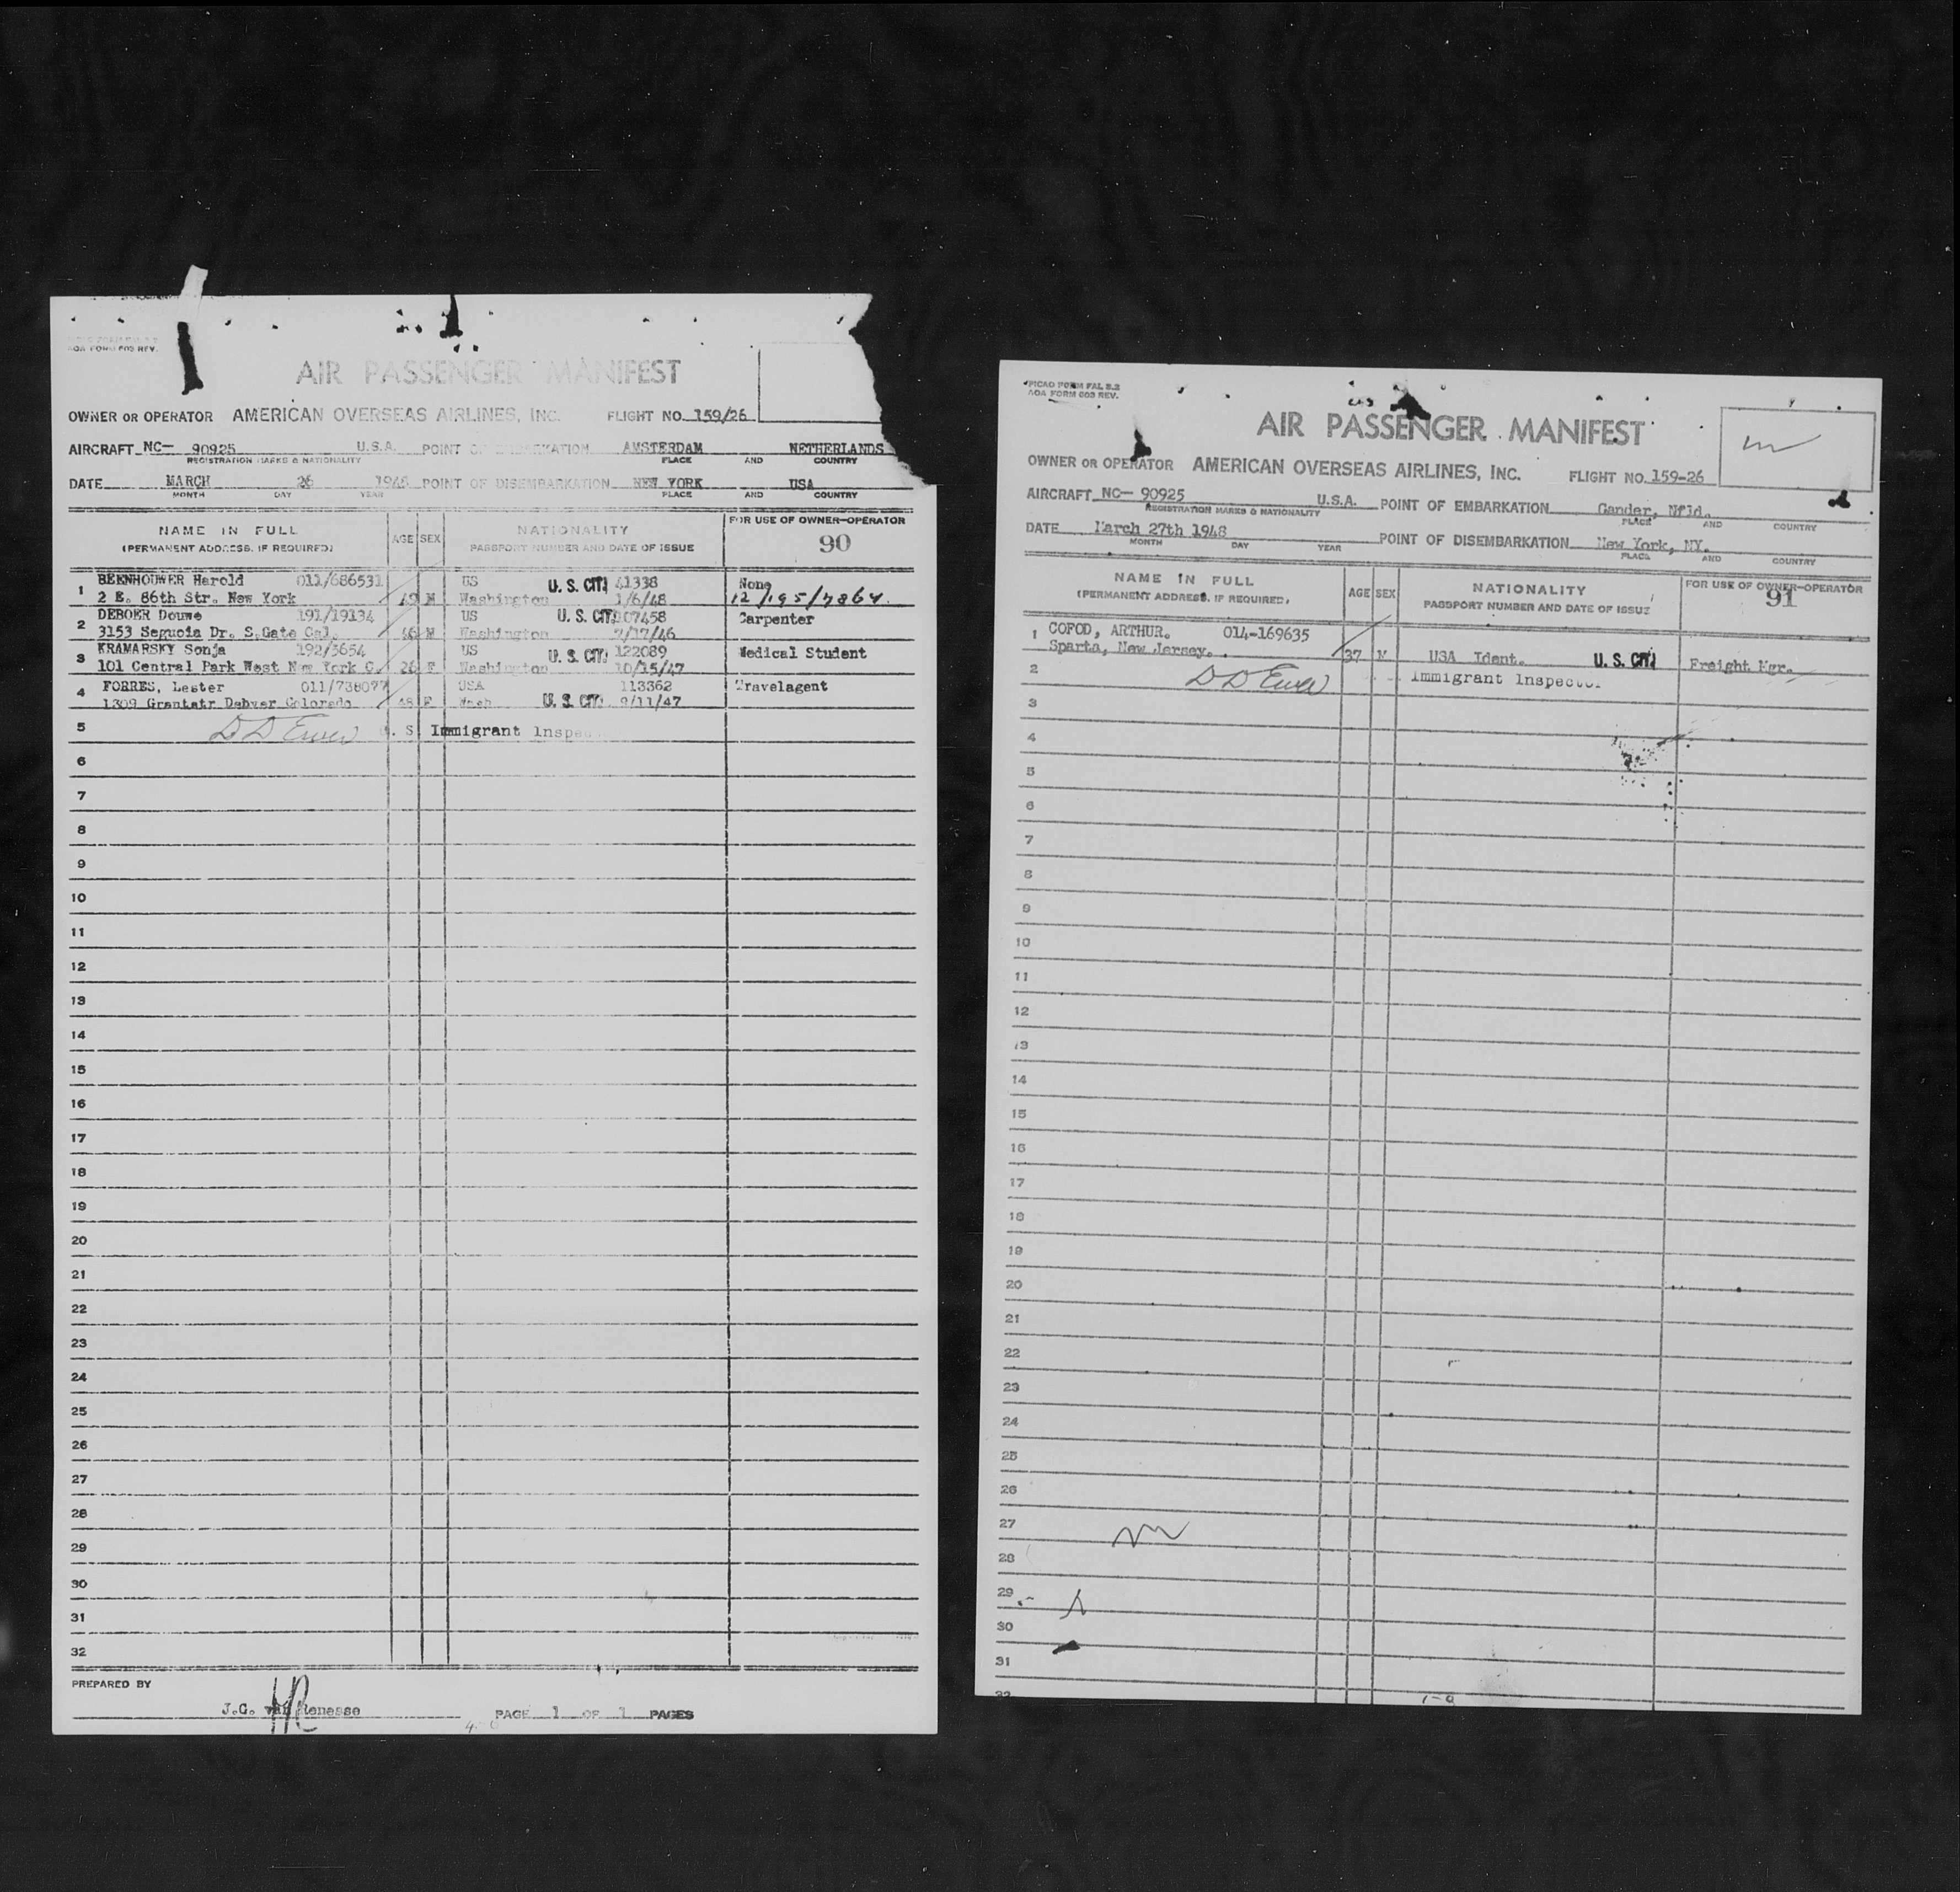 AOA FORM 603 REV.
AIR PASSENGER MANIFEST
OWNER OR OPERATOR AMERICAN OVERSEAS AIRLINES, INC. FLIGHT NO. 159/26
AIRCRAFT NC- 90925 U.S.A. POINT OF EMBARKATION AMSTERDAM NETHERLANDS
REGISTRATION MARKS & NATIONALITY PLACE AND COUNTRY
DATE MARCH 26 1948 POINT OF DISEMBARKATION NEW YORK USA
MONTH DAY YEAR PLACE AND COUNTRY
NAME IN FULL AGE SEX NATIONALITY FOR USE OF OWNER-OPERATOR
(PERMANENT ADDRESS, IF REQUIRED) PASSPORT NUMBER AND DATE OF ISSUE 90
1 BEENHOUWER Harold 011/686531 US U. S. CIT. 41338 None
2 E. 86th Str. New York 49 M Washington 1/6/48 12/195/7864.
2 DEBOER Douwe 191/19134 US U. S. CIT. 107458 Carpenter
3153 Sequoia Dr. S.Gate Cal. 46 M Washington 7/17/46
3 KRAMARSKY Sonja 192/5654 US U. S. CIT. 122089 Medical Student
101 Central Park West New York C. 26 F Washington 10/15/47
4 FORRES, Lester 011/738077 USA 113362 Travelagent
1309 Grantstr Denver Colorado 48 F Wash U. S. CIT. 9/11/47
5 D D Ewer . S. Immigrant Inspec
6
7
8
9
10
11
12
13
14
15
16
17
18
19
20
21
22
23
24
25
26
27
28
29
30
31
32
PREPARED BY
J.G. van Renesse PAGE 1 OF 1 PAGES
PICAO FORM FAL 3.2
AOA FORM 603 REV.
AIR PASSENGER MANIFEST
OWNER OR OPERATOR AMERICAN OVERSEAS AIRLINES, INC. FLIGHT NO. 159-26
AIRCRAFT NC- 90925 U.S.A. POINT OF EMBARKATION Gander, Nfld.
REGISTRATION MARKS & NATIONALITY PLACE AND COUNTRY
DATE March 27th 1948 POINT OF DISEMBARKATION New York, NY.
MONTH DAY YEAR PLACE AND COUNTRY
NAME IN FULL AGE SEX NATIONALITY FOR USE OF OWNER-OPERATOR
(PERMANENT ADDRESS, IF REQUIRED) PASSPORT NUMBER AND DATE OF ISSUE 91
1 COFOD, ARTHUR. 014-169635
Sparta, New Jersey. 37 M USA Ident. U. S. CIT. Freight Mgr.
2 D D Ewer Immigrant Inspector
3
4
5
6
7
8
9
10
11
12
13
14
15
16
17
18
19
20
21
22
23
24
25
26
27
28
29
30
31
32